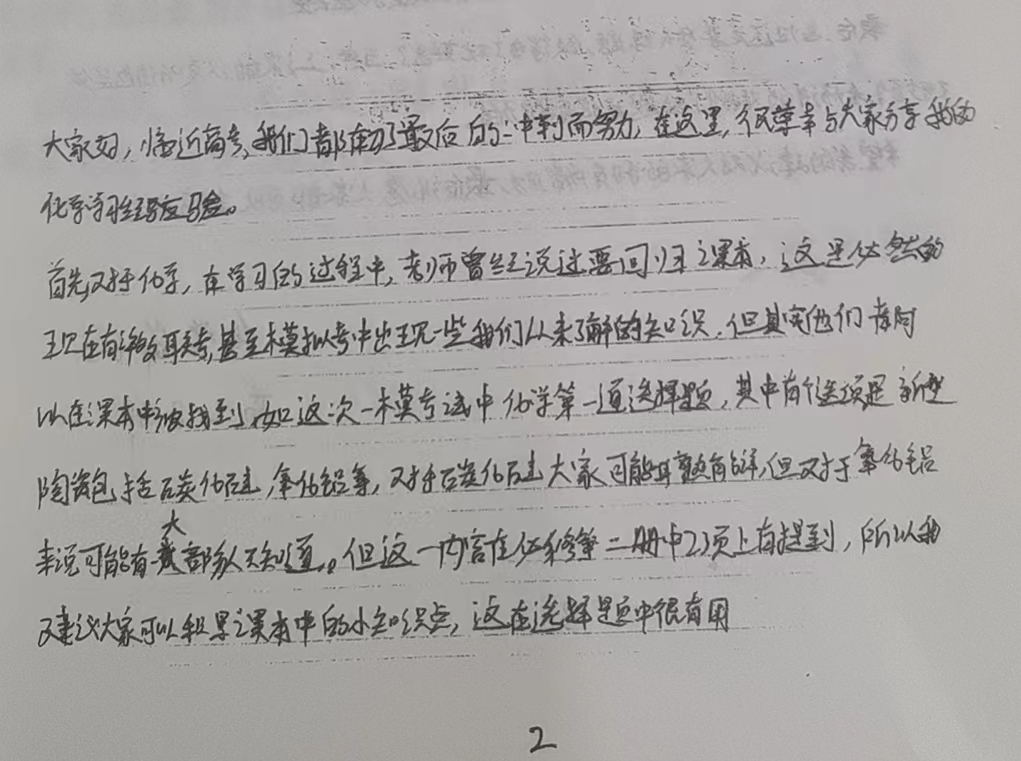 大家好，临近高考，我们都在为了最后的一冲刺而努力，在这里，很荣幸与大家分享我的
化学学习经验。
首先对于化学，在学习的过程中，老师曾经说过要回归课本，这是必然的
现在有许多联考，甚至模拟考中出现一些我们从未了解的知识，但其实他们都可
以在课本中被找到，如这次一模考试中化学第一道选择题，其中有个选项是新型
陶瓷包括碳化硅，氮化铝等，对于碳化硅大家可能耳熟能详，但对于氮化铝
来说可能有大部分人不知道。但这一内容在必修第二册中23页上有提到，所以我
建议大家可以积累课本中的小知识点，这在选择题中很有用
2